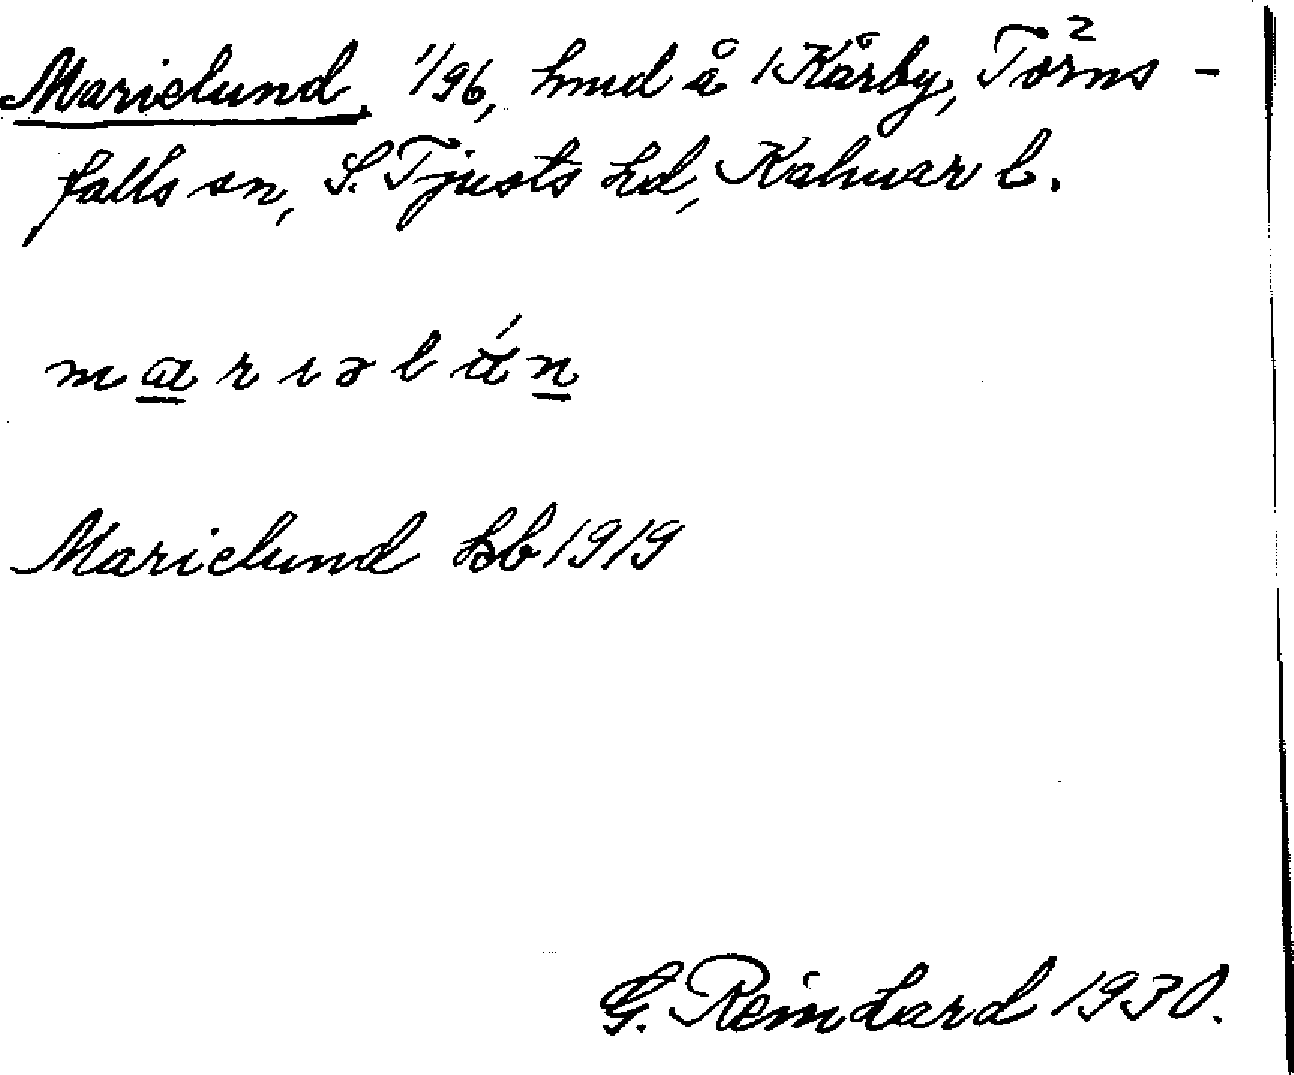 Marielund, 1/96, hmd å Kårby, Törns-
falls sn, S. Tjusts hd, Kalmar l.
Marielund hb 1919
G. Reinhard 1930.